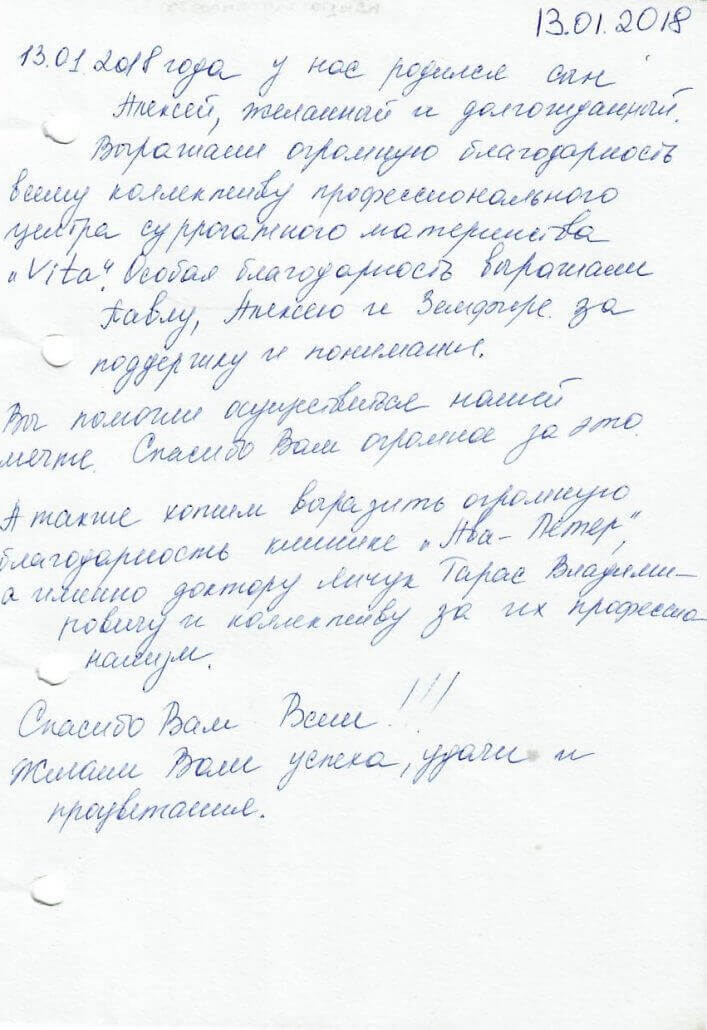 13.01.2018
13.01.2018 года у нас родился сын
Алексей, желанный и долгожданный.
Выражаем огромную благодарность
всему коллективу профессионального
центра суррогатного материнства
„Vita“. Особая благодарность выражаем
Павлу, Алексею и Земфире за
поддержку и понимания.
Вы помогли осуществится нашей
мечте. Спасибо Вам огромное за это.
А также хотим выразить огромную
благодарность клинике „Ава-Петер“,
а именно доктору Тарас Владими-
ровичу и коллективу за их професио
нализм.
Спасибо Вам Всем!!!
Желаем Вам успеха, удачи и
процветания.